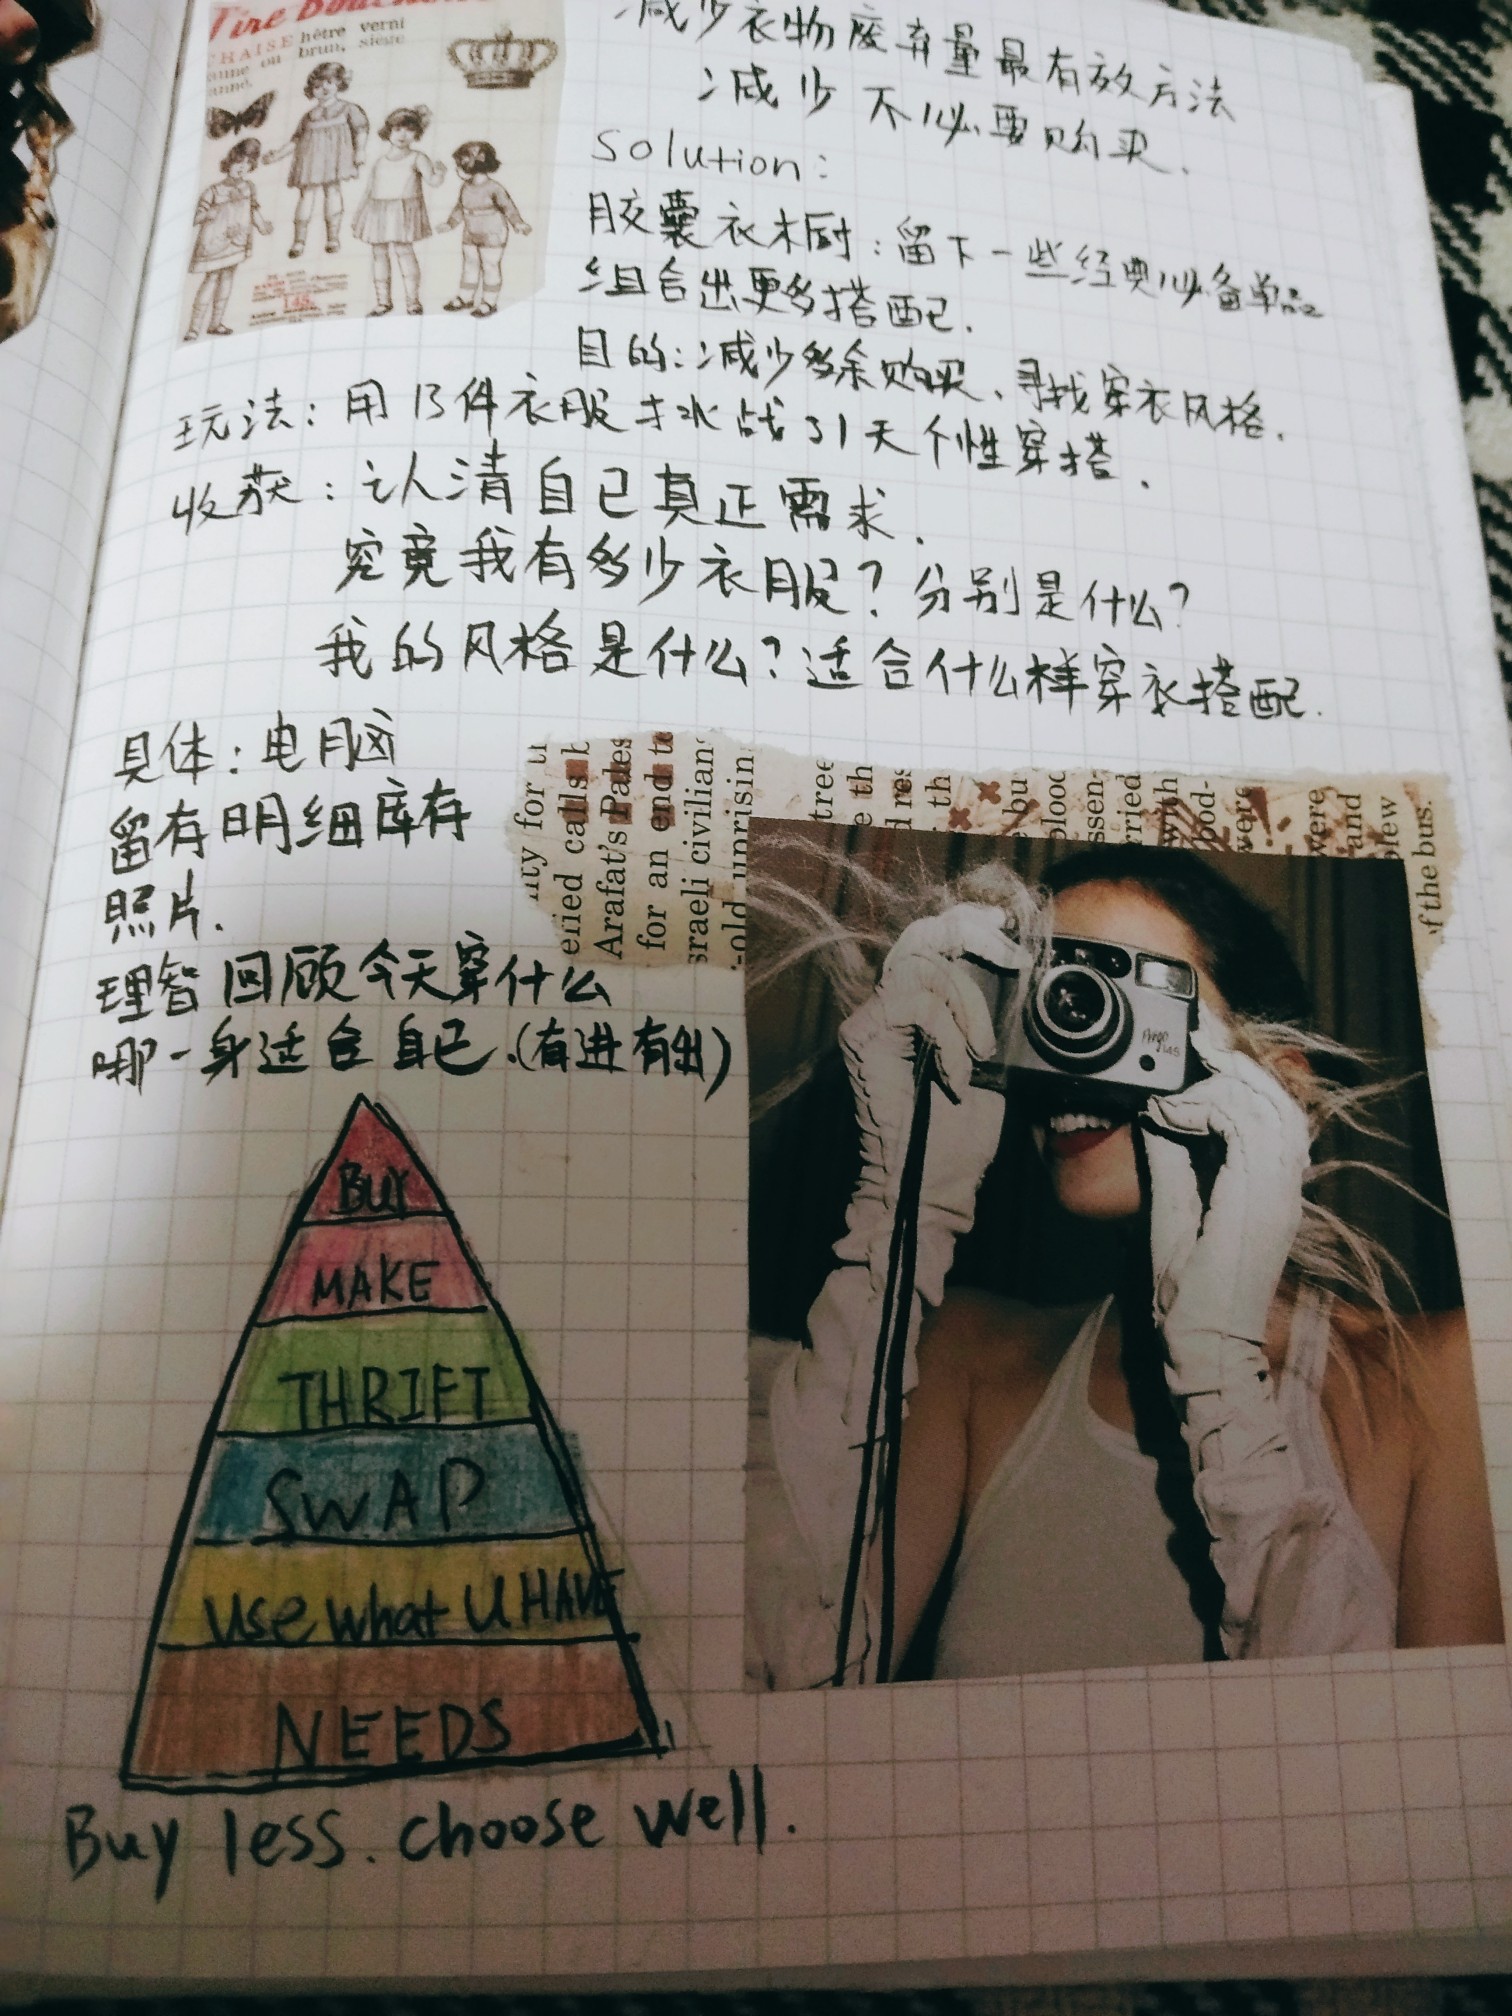 Tire Bouchon
CHAISE hêtre verni
brun, siege
减少衣物废弃量最有效方法
减少不必要购买.
Solution:
胶囊衣橱:留下一些经典必备单品
组合出更多搭配.
目的:减少多余购买、寻找穿衣风格.
玩法:用15件衣服挑战31天个性穿搭.
收获:认清自己真正需求.
究竟我有多少衣服?分别是什么?
我的风格是什么?适合什么样穿衣搭配.
具体:电脑
留有明细库存
照片.
理智回顾今天穿什么
哪一身适合自己.(有进有出)
calls
Arafat's
for an end to
civilian
uprising
tree
and
of the bus.
BUY
MAKE
THRIFT
SWAP
use what U HAVE
NEEDS
Buy less. choose well.